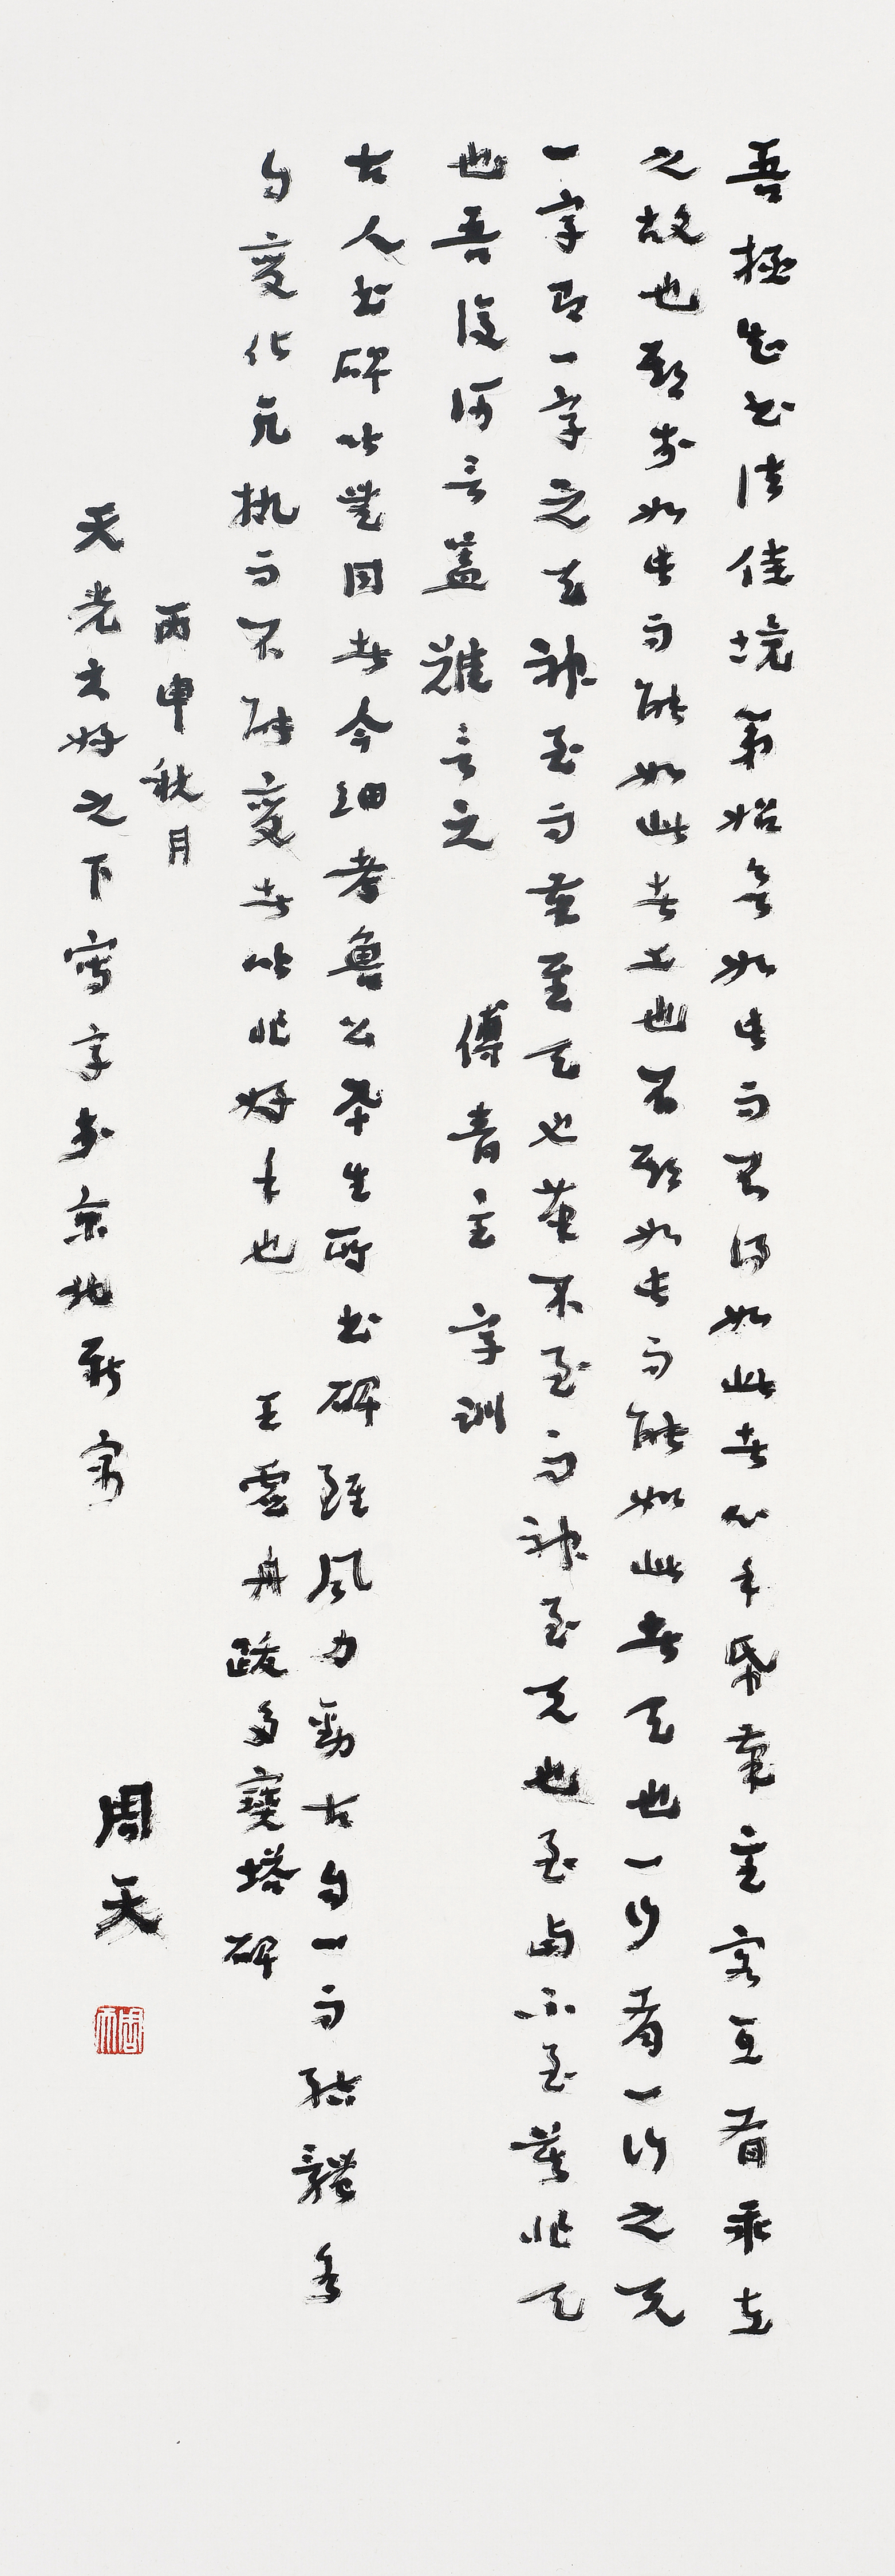 吾極知书法佳境第始欲如此而不得如此者心手帋筆主客互有乖左
之故也期於如此而能如此者工也不期如此而能如此者天也一行有一行之天
一字有一字之天神至而筆至天也筆不至而神至天也至與不至莫非天
也吾復何言蓋難言之 傅青主 字訓
古人书碑皆因者今細考魯公平生所书碑雖風力勁古自一而結體各
自變化凡执而不能變者皆非好手也 王虛舟跋多寶塔碑
丙申秋月
天光大好之下寫字於京北新寓 周天